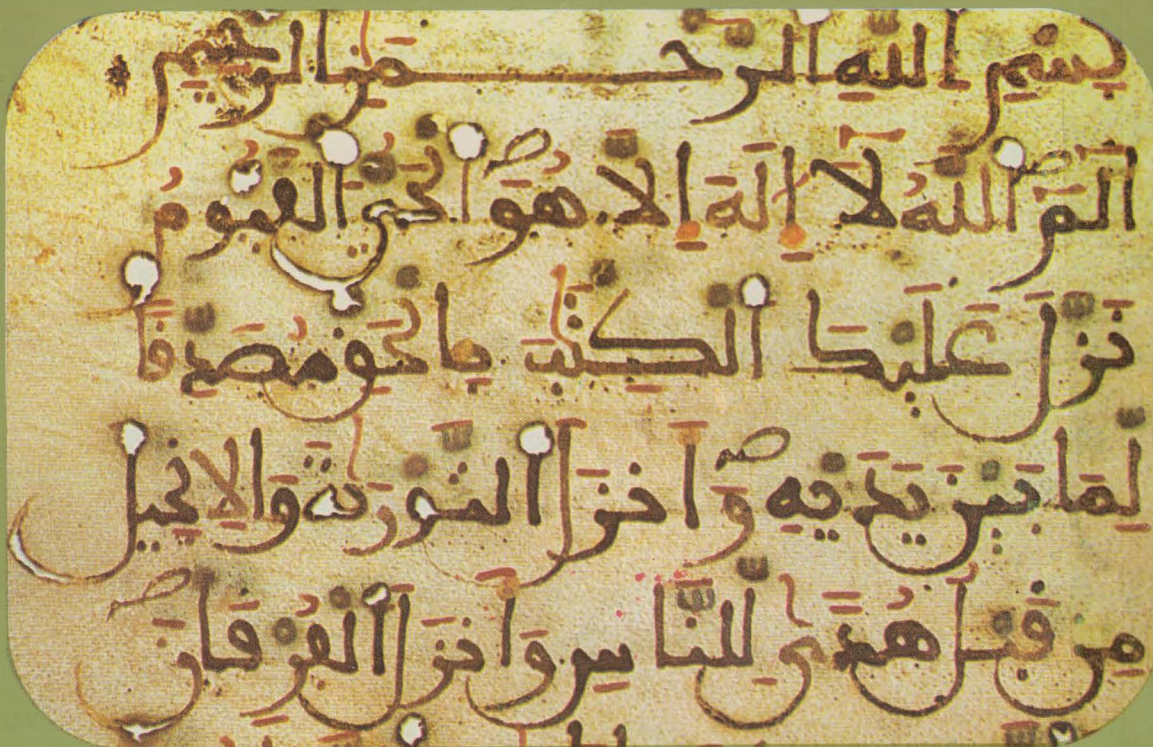 بِسْمِ اللَّهِ الرَّحْمٰنِ الرَّحِيمِ
الٓمٓ اللَّهُ لَآ إِلٰهَ إِلَّا هُوَ الْحَيُّ الْقَيُّومُ
نَزَّلَ عَلَيْكَ الْكِتٰبَ بِالْحَقِّ مُصَدِّقًا
لِّمَا بَيْنَ يَدَيْهِ وَأَنزَلَ التَّوْرٰىةَ وَالْإِنجِيلَ
مِن قَبْلُ هُدًى لِّلنَّاسِ وَأَنزَلَ الْفُرْقَانَ